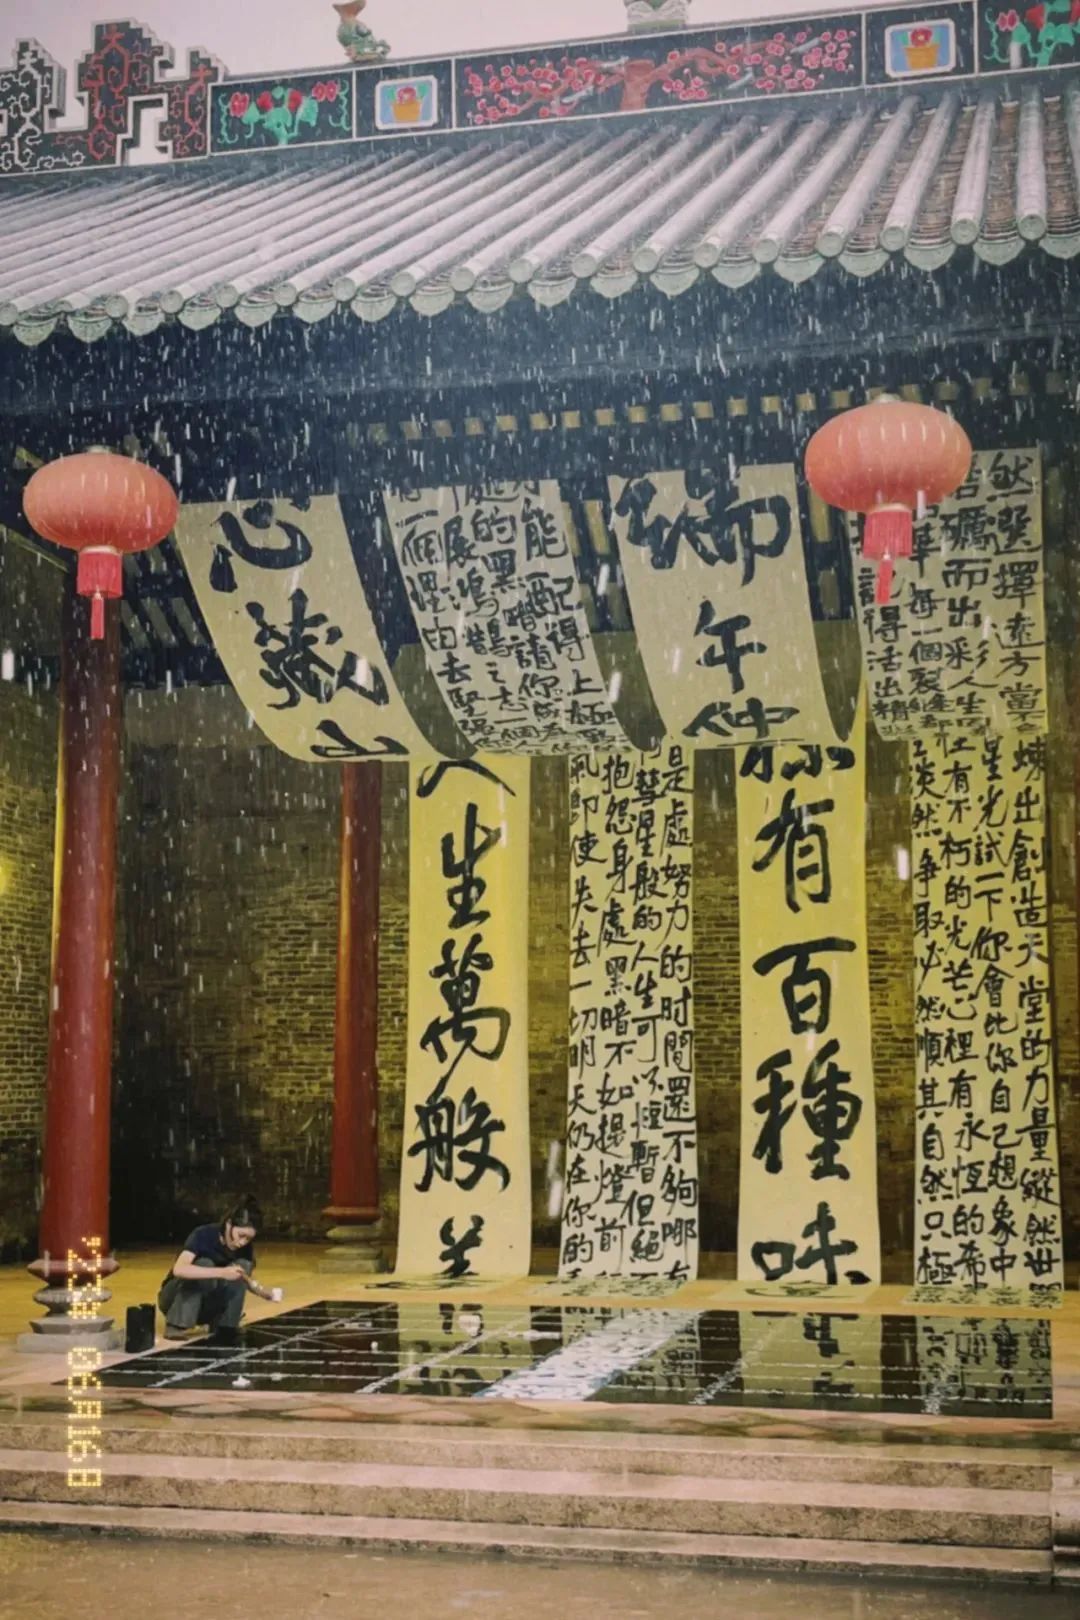 然選擇遠方當不
礪而出采人生
每一個裂縫都
得活出精
煉出創造天堂的力量縱然世
星光試一下你會比你自己想象中
有不朽的光芒心裡有永恆的希
淡然爭取必然順其自然只極
端午仲
有百種味
能配得上極
處的黑暗請你
展鴻鵠之志一個
個理由去堅強
是處努力的时間還不夠哪有
彗星般的人生可以短暫但絕不
抱怨身處黑暗不如提燈前
氣即使失去一切明天仍在你的
心藏山
人生萬般
'23年 06月16日